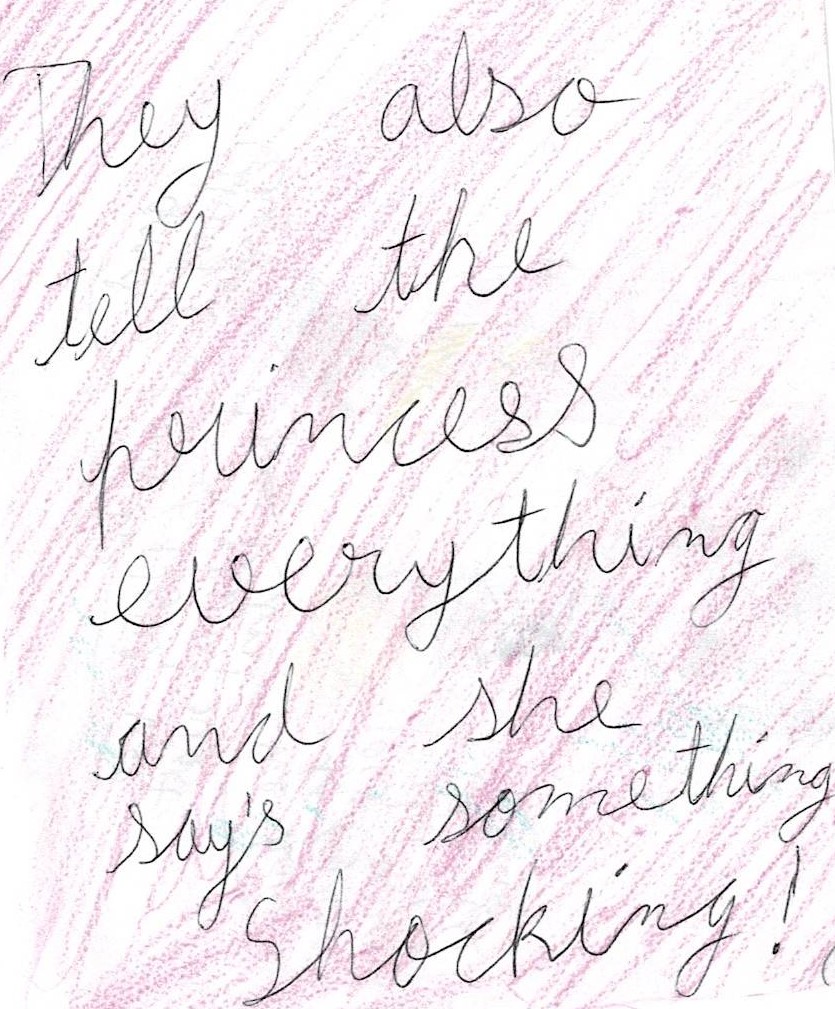 They also
tell the
princess
everything
and she
say's something
Shocking!